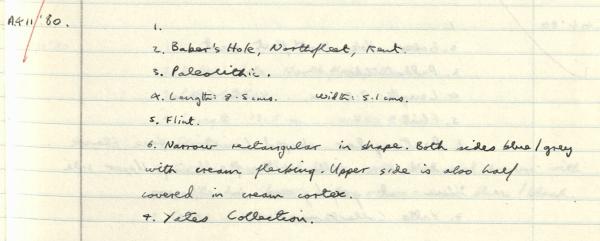 A411/'80. 1.
2. Baker's Hole, Northfleet, Kent.
3. Paleolithic.
4. Length: 8.5cms. Width: 5.1cms.
5. Flint.
6. Narrow rectangular in shape. Both sides blue/grey
with cream flecking. Upper side is also half
covered in cream cortex.
7. Yates Collection.